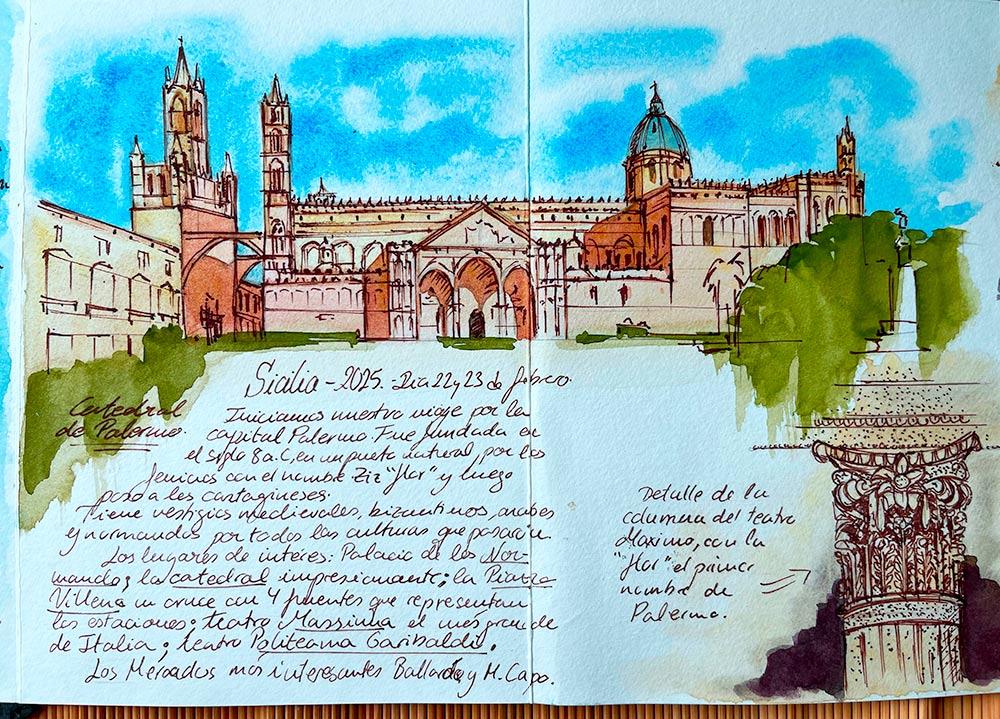 Sicilia - 2025. - Dia 22 y 23 de febrero.
Catedral
de Palermo.
Iniciamos nuestro viaje por la
capital Palermo. Fue fundada en
el siglo 8 a.C, en un puerto natural, por los
fenicios con el nombre Ziz "flor" y luego
paso a los cartagineses.
Tiene vestigios medievales, bizantinos, arabes
y normandos por todas las culturas que pasaron.
Los lugares de interes: Palacio de los Nor-
mandos; la catedral impresionante; la Piazza
Villena un cruce con 4 fuentes que representan
las estaciones; teatro Massimo el mas grande
de Italia; teatro Politeama Garibaldi.
Los Mercados mas interesantes Ballarò y M. Capo.
Detalle de la
columna del teatro
Maximo, con la
"flor" el primer
nombre de
Palermo.